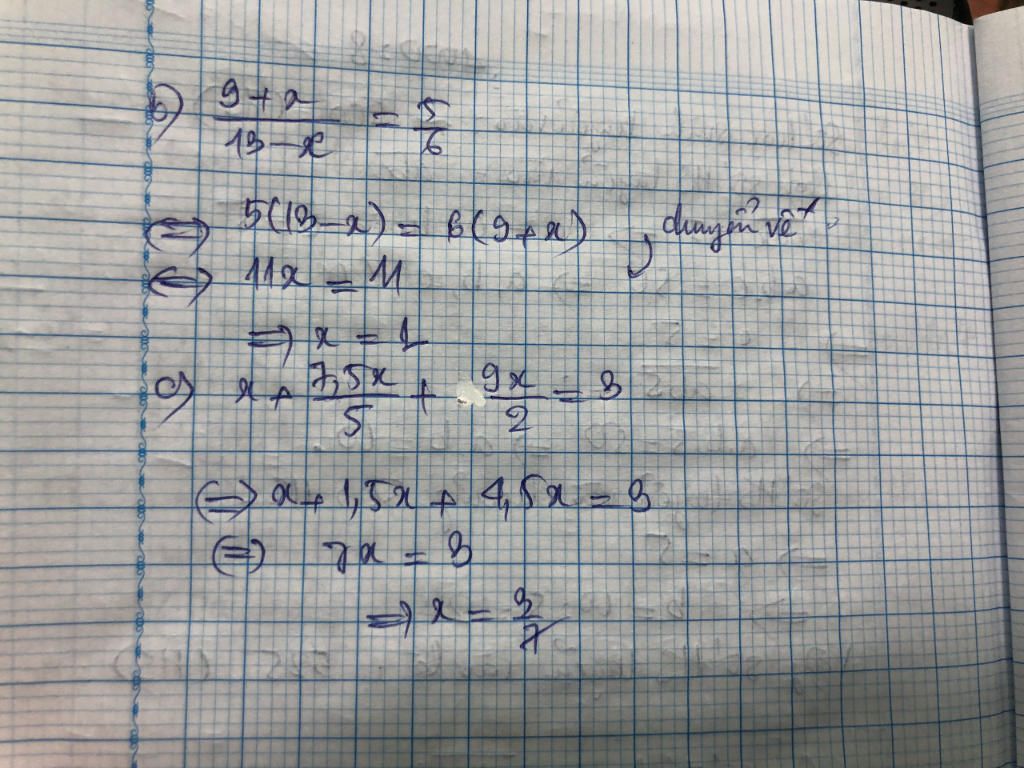 b) \frac{9+x}{13-x} = \frac{5}{6}
⇔ 5(13-x) = 6(9+x) , chuyển vế
⇔ 11x = 11
⇒ x = 1
c) x + \frac{7,5x}{5} + \frac{9x}{2} = 3
⇔ x + 1,5x + 4,5x = 3
⇔ 7x = 3
⇒ x = \frac{3}{7}